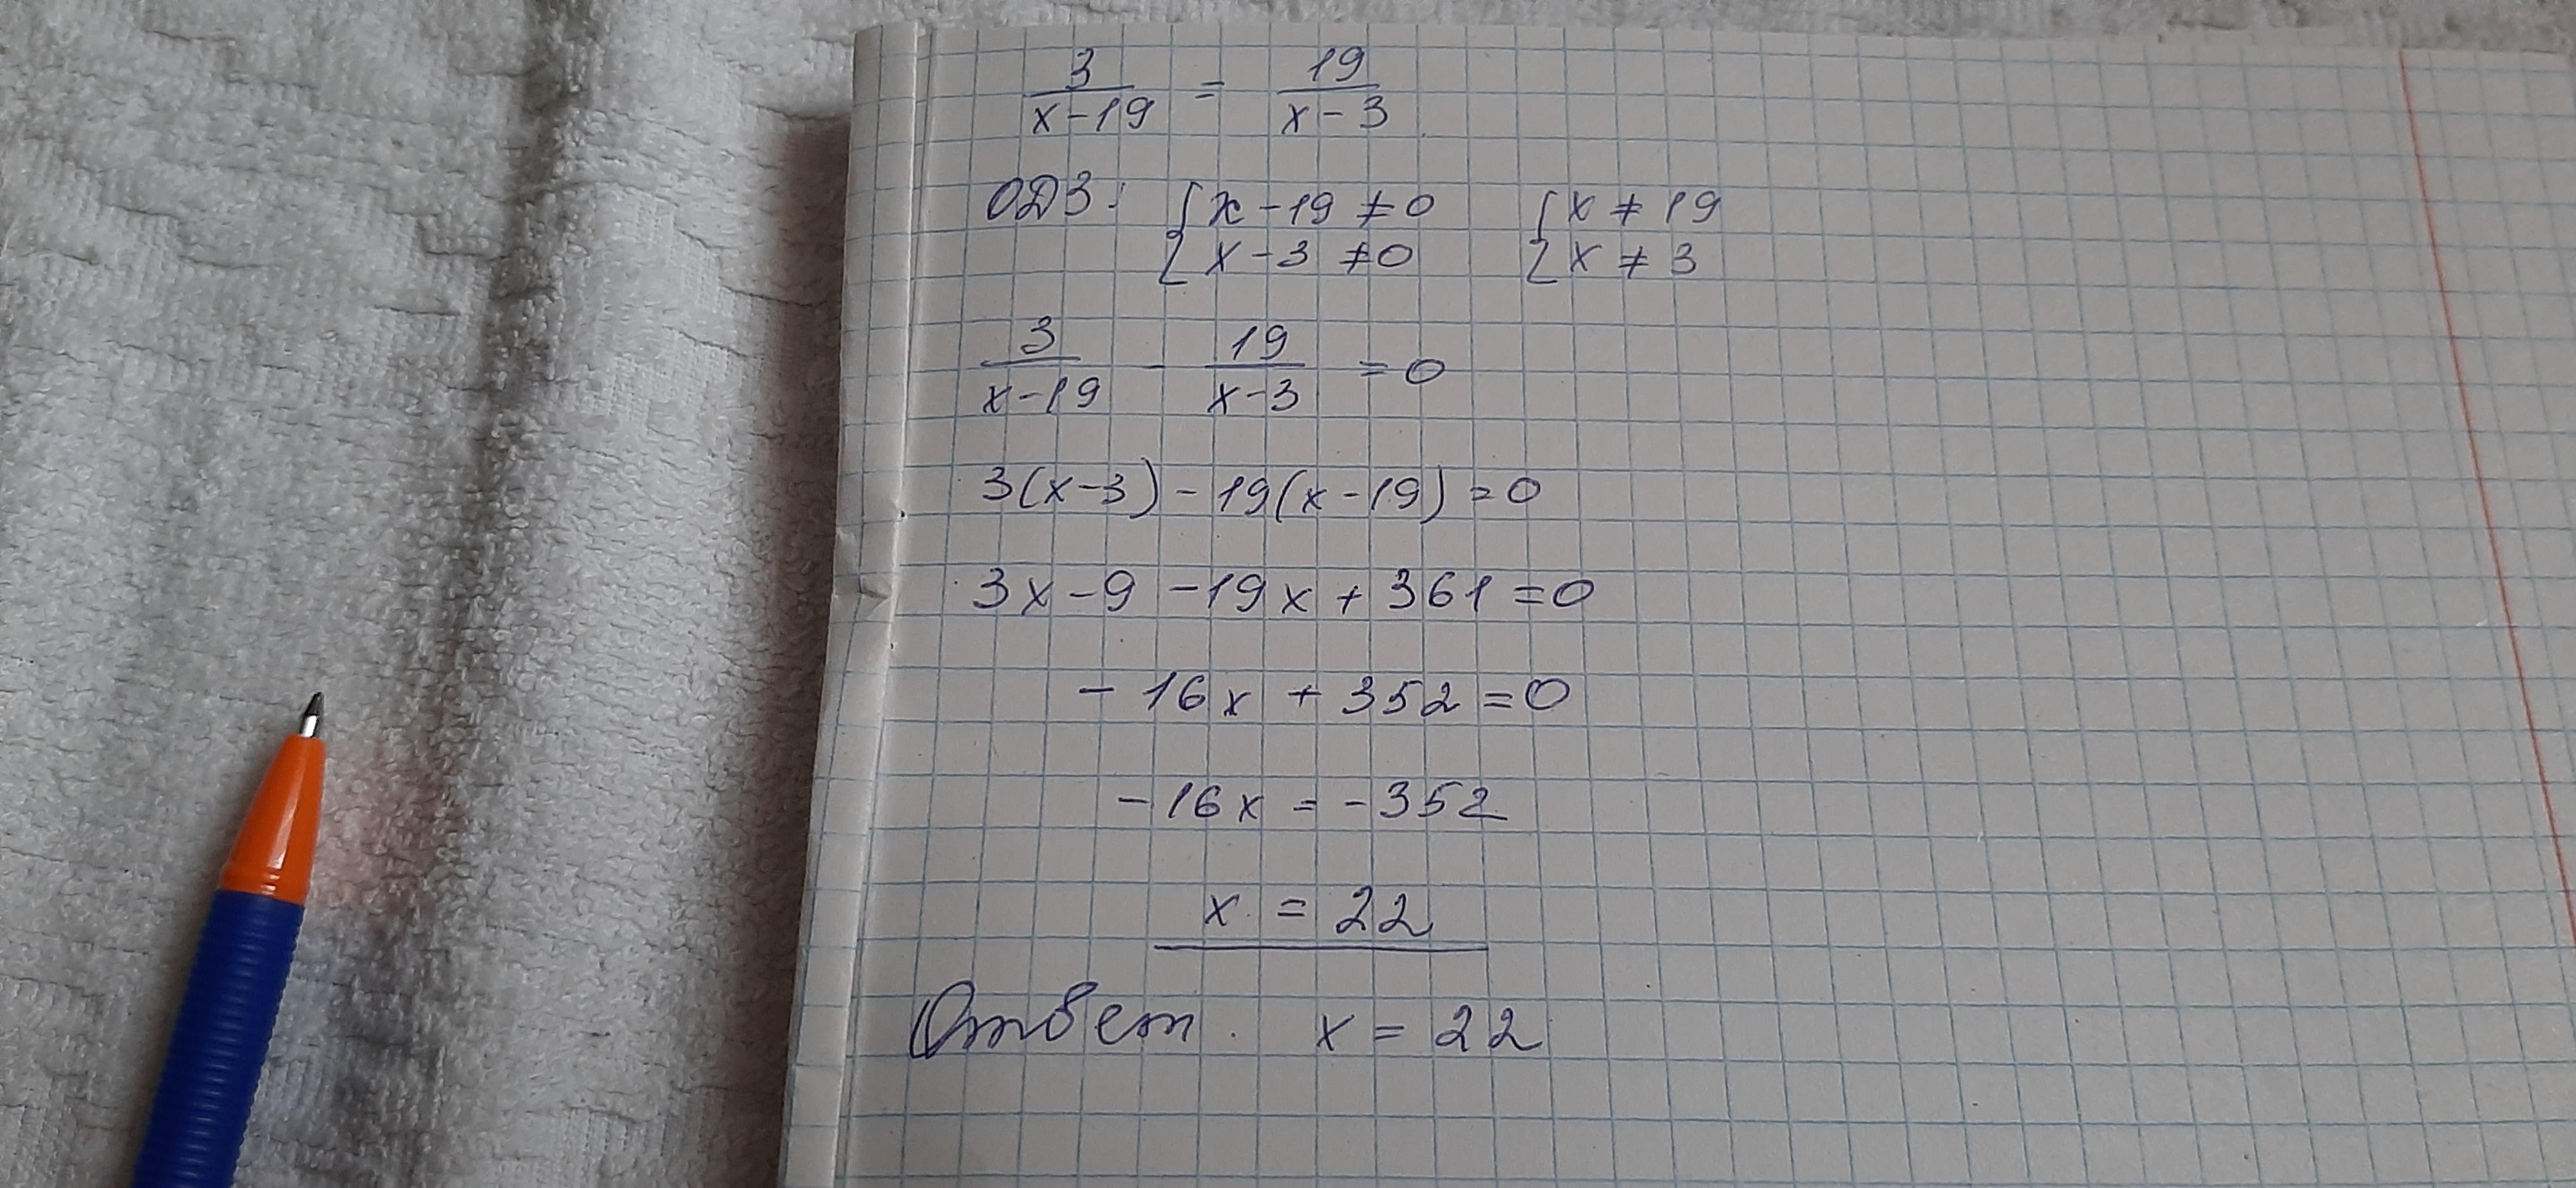 3/(x-19) = 19/(x-3)
ОДЗ: { x-19 ≠ 0 { x ≠ 19
{ x-3 ≠ 0 { x ≠ 3
3/(x-19) - 19/(x-3) = 0
3(x-3) - 19(x-19) = 0
3x - 9 - 19x + 361 = 0
- 16x + 352 = 0
-16x = -352
x = 22
Ответ. x = 22